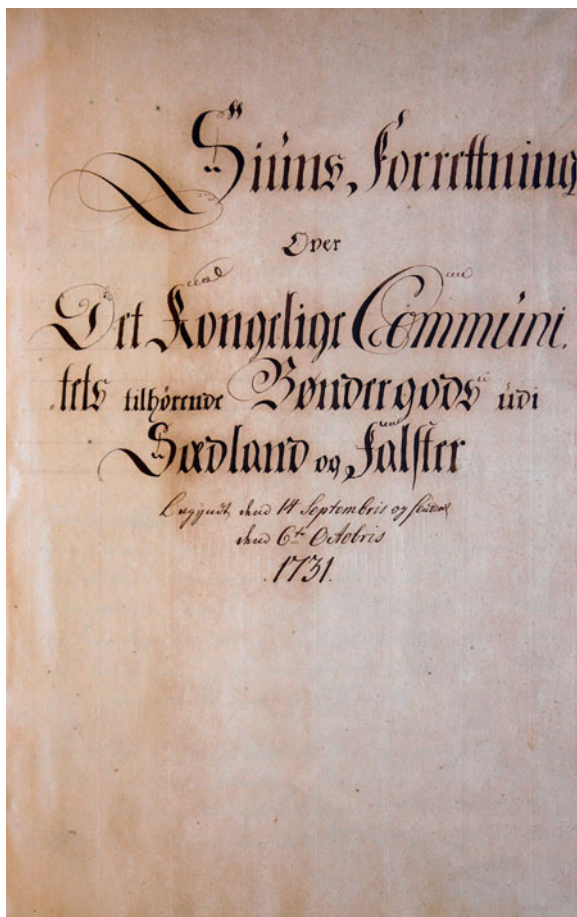 Siüns, Forrettning
Over
Det Kongelige Commüni,
tets tilhørende Bøndergods üdi
Sædland og Falster
Begyndt dend 14 Septembris og sluttet
dend 6te Octobris
1731.